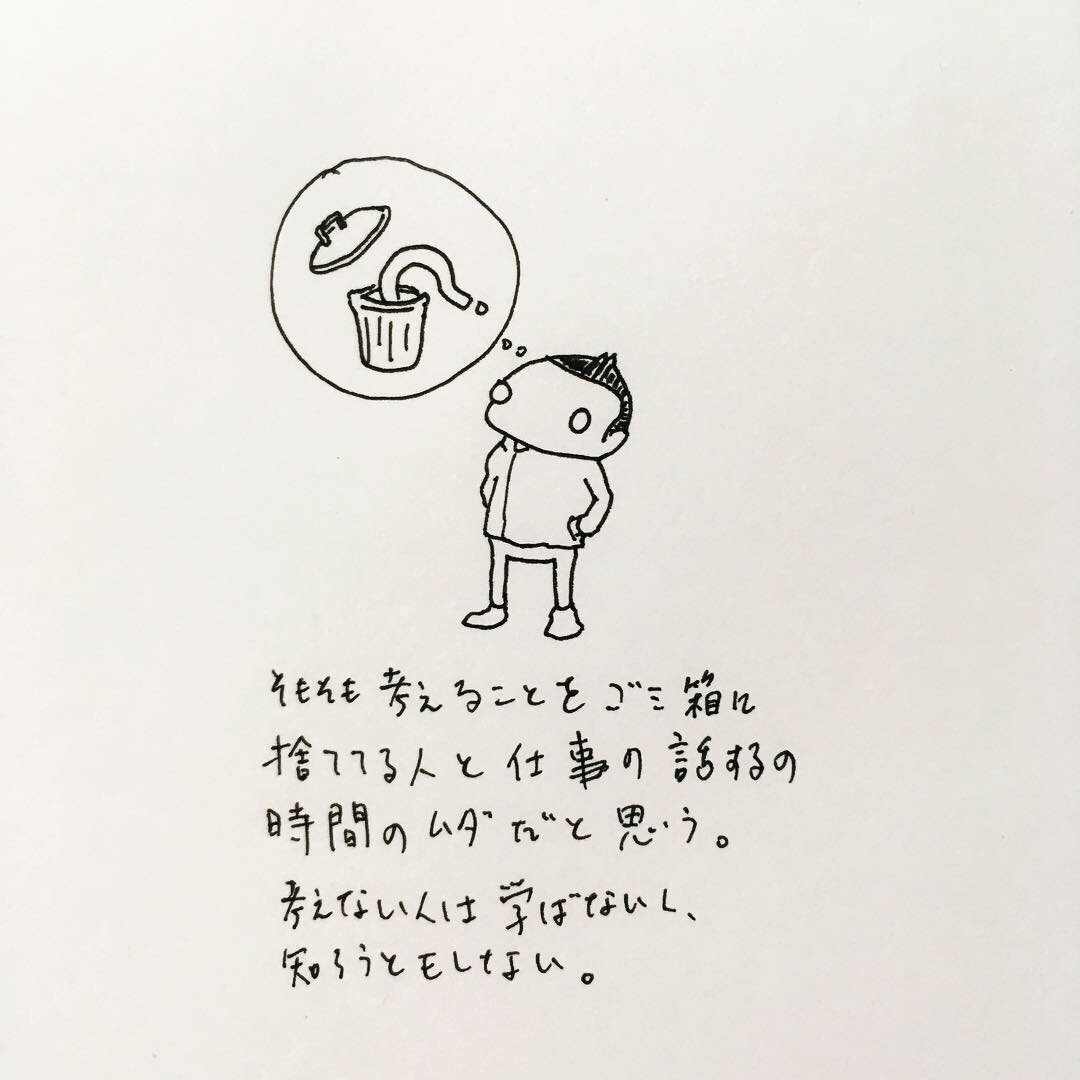 そもそも考えることをゴミ箱に
捨ててる人と仕事の話するの
時間のムダだと思う。
考えない人は学ばないし、
知ろうともしない。